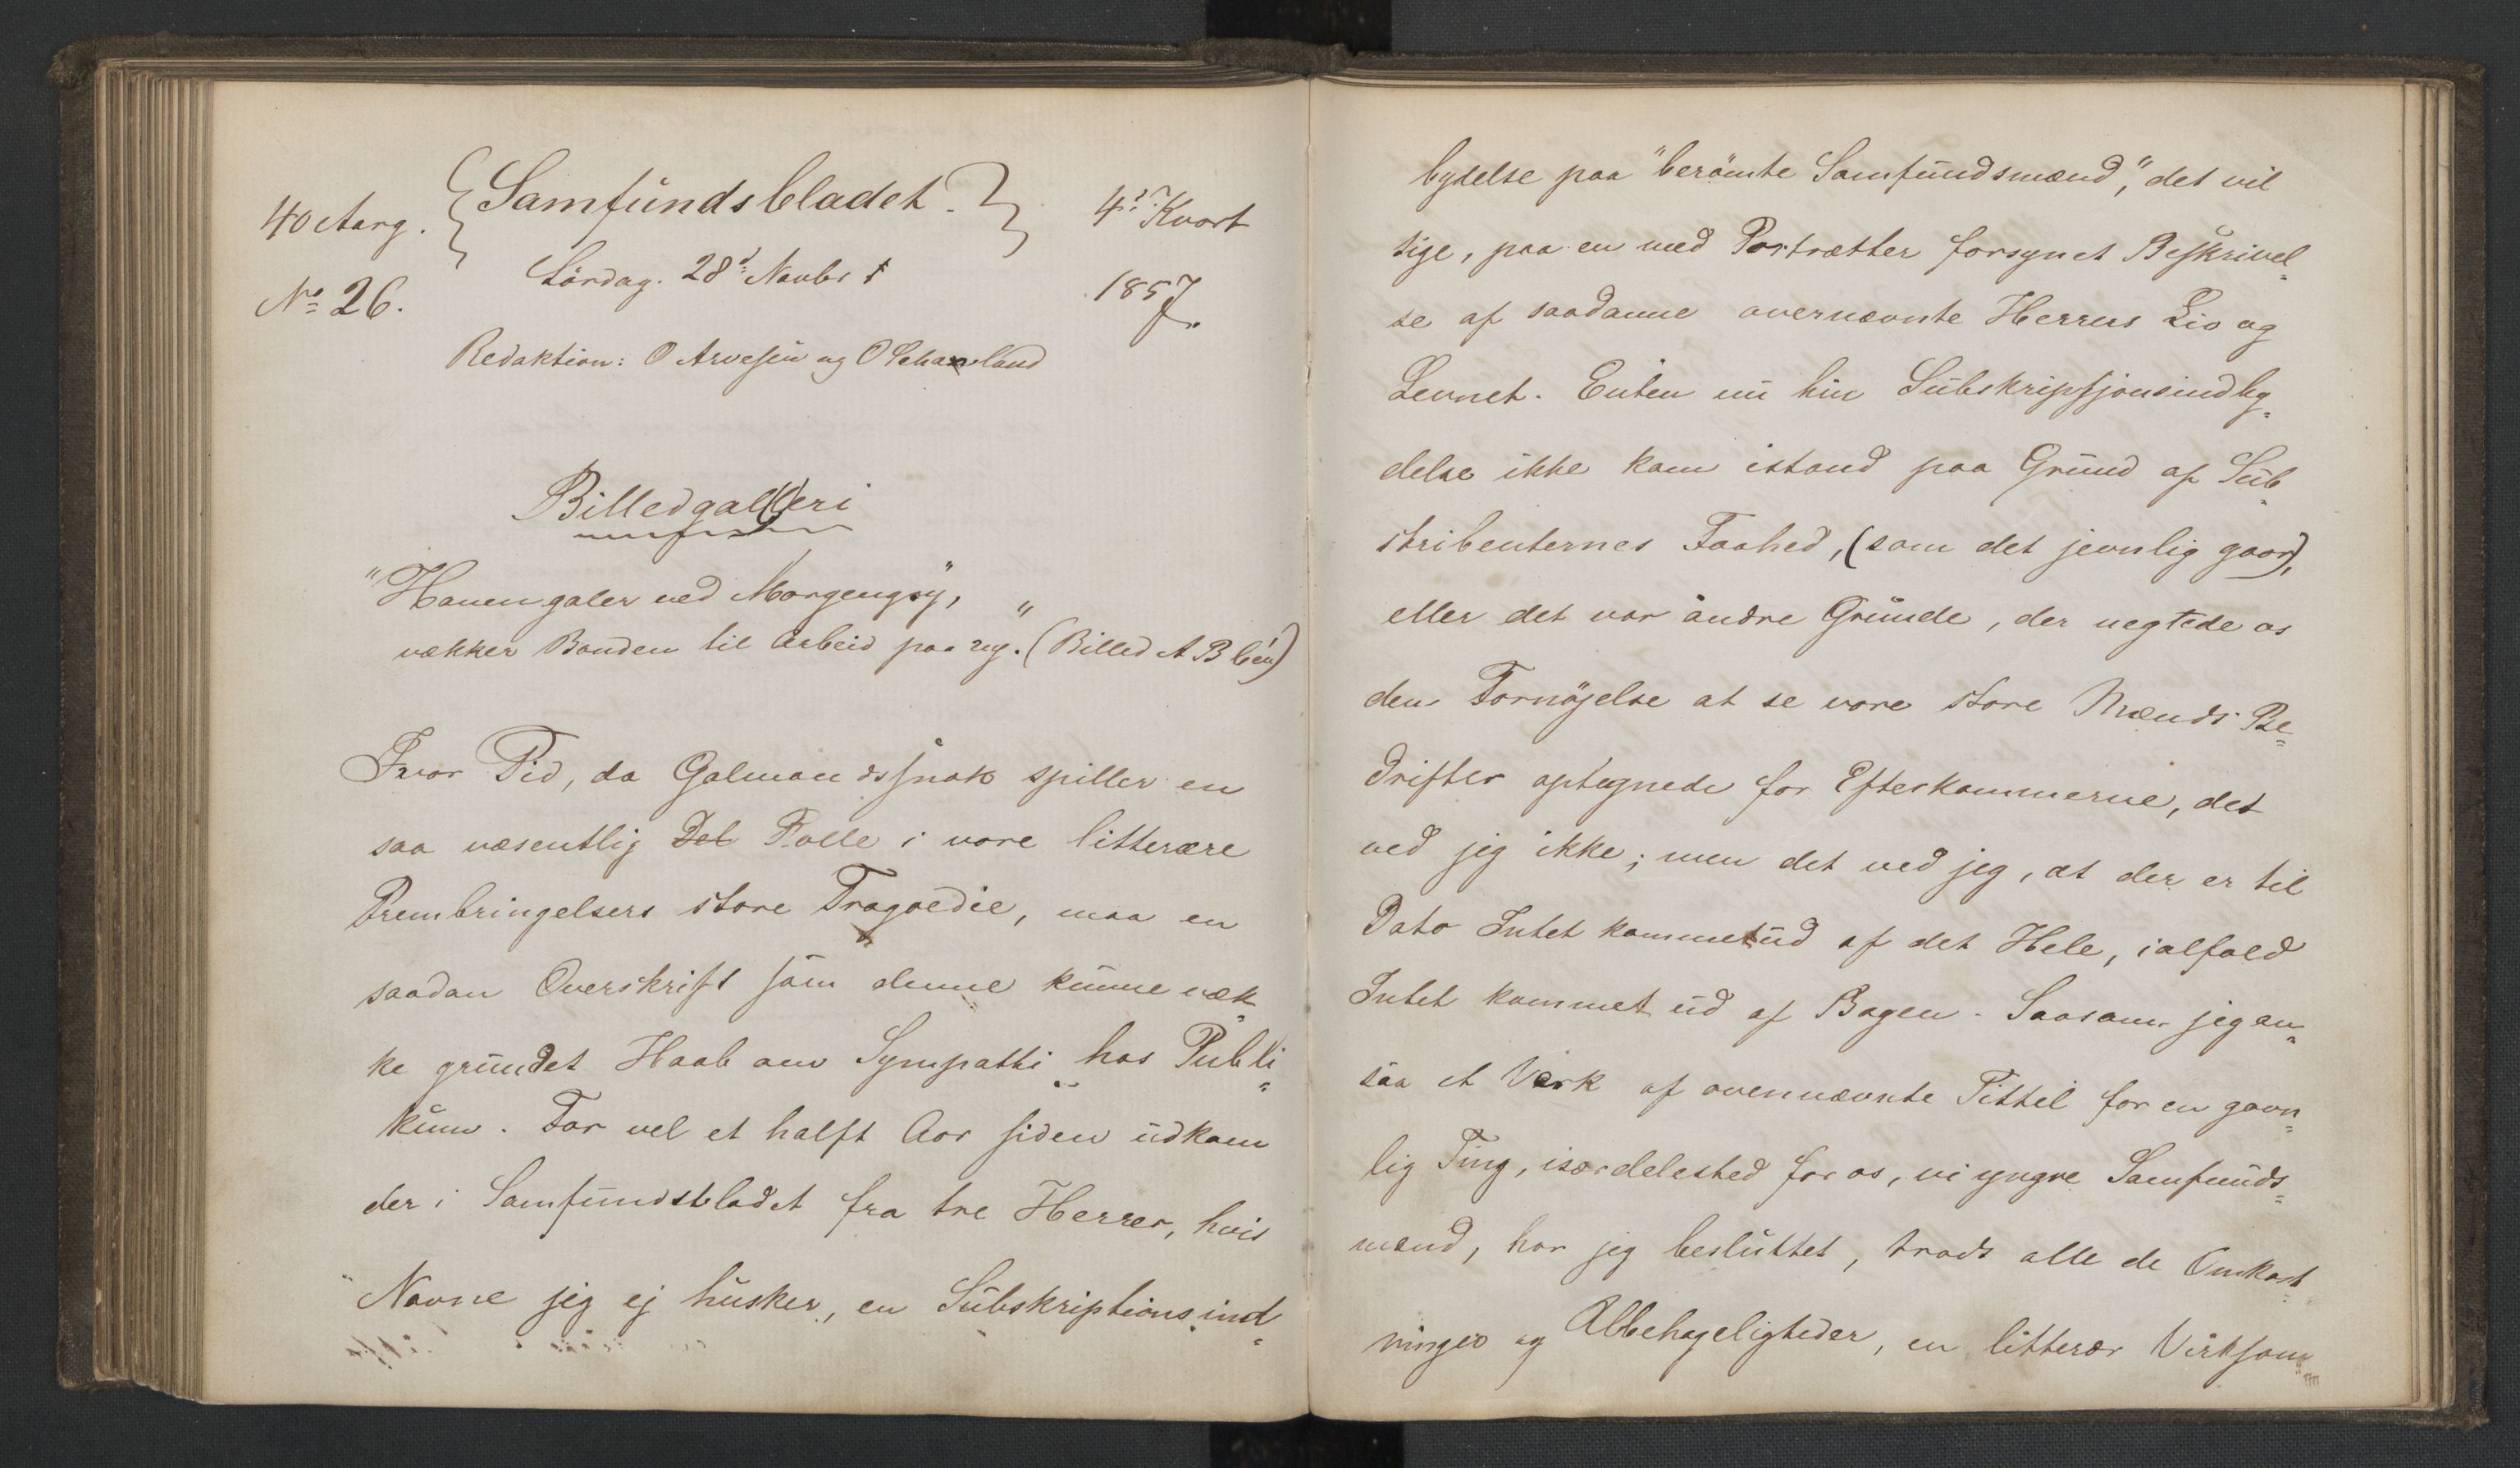 40 Aarg.
Samfundsbladet.
4de Kvart
No 26.
Lördag. 28d Novbr
1857.
Redaktion: O Arvesen og O Schavland
Billedgalleri
"Hanen galer ved Morgengry,
vækker Bonden til Arbeid paa ny." (Billed A B C'en)
I vor Tid, da Galmandssnak spiller en
saa væsentlig Del Rolle i vore litterære
Frembringelsers store Tragoedie, maa en
saadan Overskrift som denne kunne væk=
ke grundet Haab om Sympathi hos Publi=
kum. For vel et halft Aar siden udkom
der i Samfundsbladet fra tre Herrer, hvis
Navne jeg ej husker, en Subskriptionsind=
bydelse paa "berömte Samfundsmænd," det vil
sige, paa en med Portrætter forsynet Beskrivel=
se af saadanne ovennævnte Herrers Liv og
Levnet. Enten nu hin Subskripsjonsindby=
delse ikke kom istand paa Grund af Sub=
skribenternes Faahed, (som det jevnlig gaar),
eller det var andre Grunde, der negtede os
den Fornöjelse at se vore store Mænds Be=
drifter optegnede for Efterkommerne, det
ved jeg ikke; men det ved jeg, at der er til
Dato Intet kommet ud af det Hele, ialfald
Intet kommet ud af Bogen. Saasom jeg an=
saa et Værk af ovennævnte Tittel for en gavn=
lig Ting, isærdeleshed for os, vi yngre Samfunds=
mænd, har jeg besluttet, trods alle de Omkost=
ninger og Ubbehageligheder, en litterær Virksom=